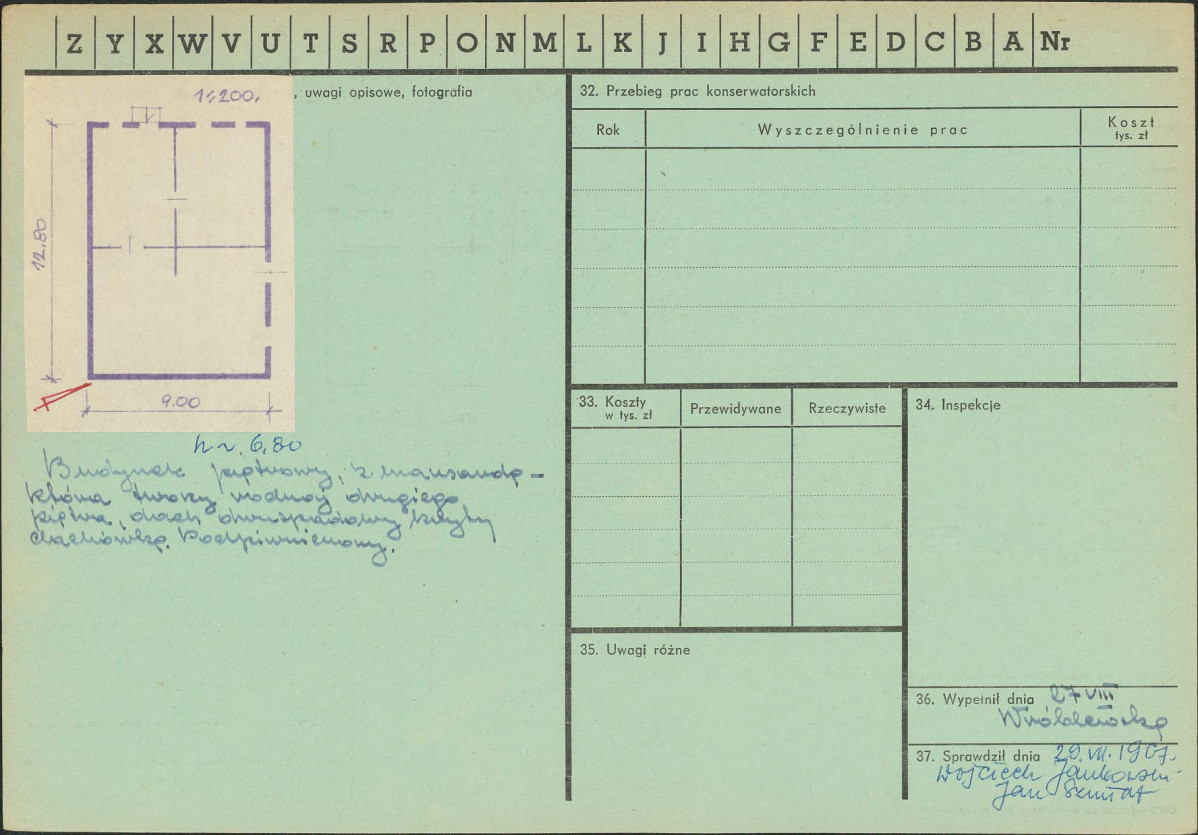 Z Y X W V U T S R P O N M L K J I H G F E D C B A Nr
1:200.
, uwagi opisowe, fotografia
12.80
9.00
h ~ 6,80
Budynek piętrowy, z mansardą –
która tworzy rodzaj drugiego
piętra, dach dwuspadowy kryty
dachówką. Podpiwniczony.
32. Przebieg prac konserwatorskich
Rok
Wyszczególnienie prac
Koszt
tys. zł
33. Koszty
w tys. zł
Przewidywane
Rzeczywiste
34. Inspekcje
35. Uwagi różne
36. Wypełnił dnia 27 VIII
Wróblewska
37. Sprawdził dnia 29.
Wojciech Jankowski
Jan